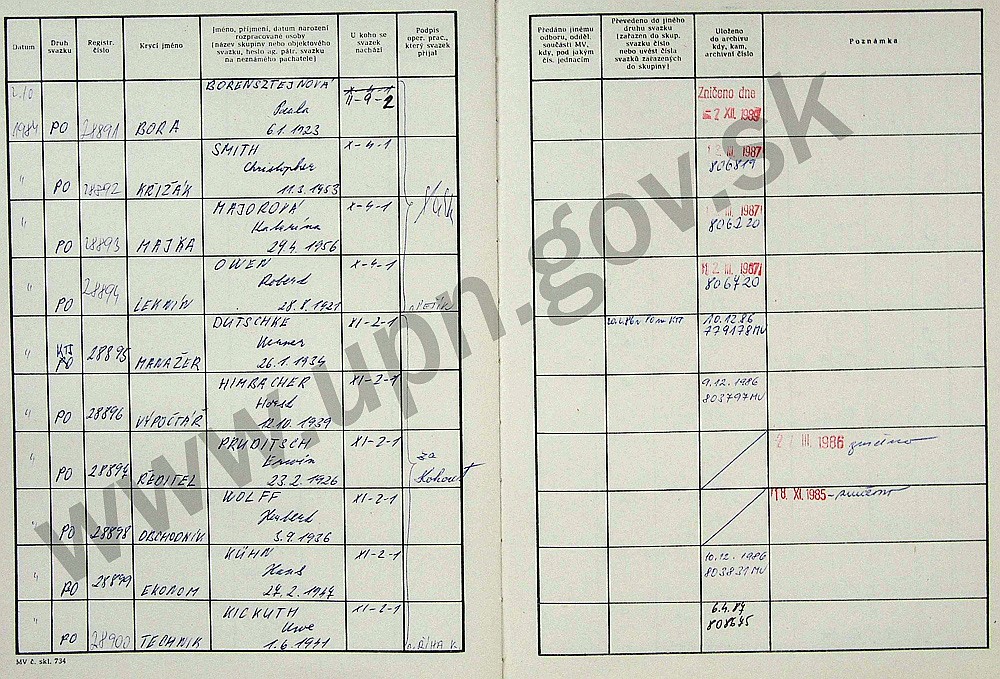 Datum
Druh
svazku
Registr.
číslo
Krycí jméno
Jméno, příjmení, datum narození
rozpracované osoby
(název skupiny nebo objektového
svazku, heslo ag. pátr. svazku
na neznámého pachatele)
U koho se
svazek
nachází
Podpis
oper. prac.,
který svazek
přijal
Předáno jinému
odboru, odděl.
součásti MV,
kdy, pod jakým
čís. jednacím
Převedeno do jiného
druhu svazku
(zařazen do skup.
svazku číslo
nebo uvést čísla
svazků zařazených
do skupiny)
Uloženo
do archivu
kdy, kam,
archivní číslo
Poznámka
2.10
1984 PO 28891 BORA
BORENSZTEJNOVÁ
Paula
6.1.1923
X-4-1
II-9-2
Zničeno dne
- 2 XII. 1985
" PO 28892 KŘIŽÁK
SMITH
Christopher
11.3.1953
X-4-1
12. III. 1987
806819
" PO 28893 MAJKA
MAJOROVÁ
Katarina
29.4.1956
X-4-1
III. 1987
806220
" PO 28894 LEKNÍN
OWEN
Robert
28.8.1921
X-4-1
12. III. 1987
806720
" KTS
PO 28895 MANAŽER
DUTSCHKE
Werner
26.1.1934
XI-2-1
10.12.86
779178MV
" PO 28896 VÝPOČTÁŘ
HIMBACHER
Horst
12.10.1939
XI-2-1
9.12.1986
803797MV
" PO 28897 ŘEDITEL
PRUDITSCH
Erwin
23.2.1926
XI-2-1
za
Kohout
27 III. 1986 zničeno
" PO 28898 OBCHODNÍK
WOLFF
Herbert
3.9.1936
XI-2-1
18. XI. 1985 - zničeno
" PO 28899 EKONOM
KÜHN
Hans
27.2.1947
XI-2-1
10.12.1986
803831MV
PO 28900 TECHNIK
KICKUTH
Uwe
1.6.1941
XI-2-1
ŘÍHA K.
6.4.87
808675
MV č. skl. 734
www.upn.gov.sk